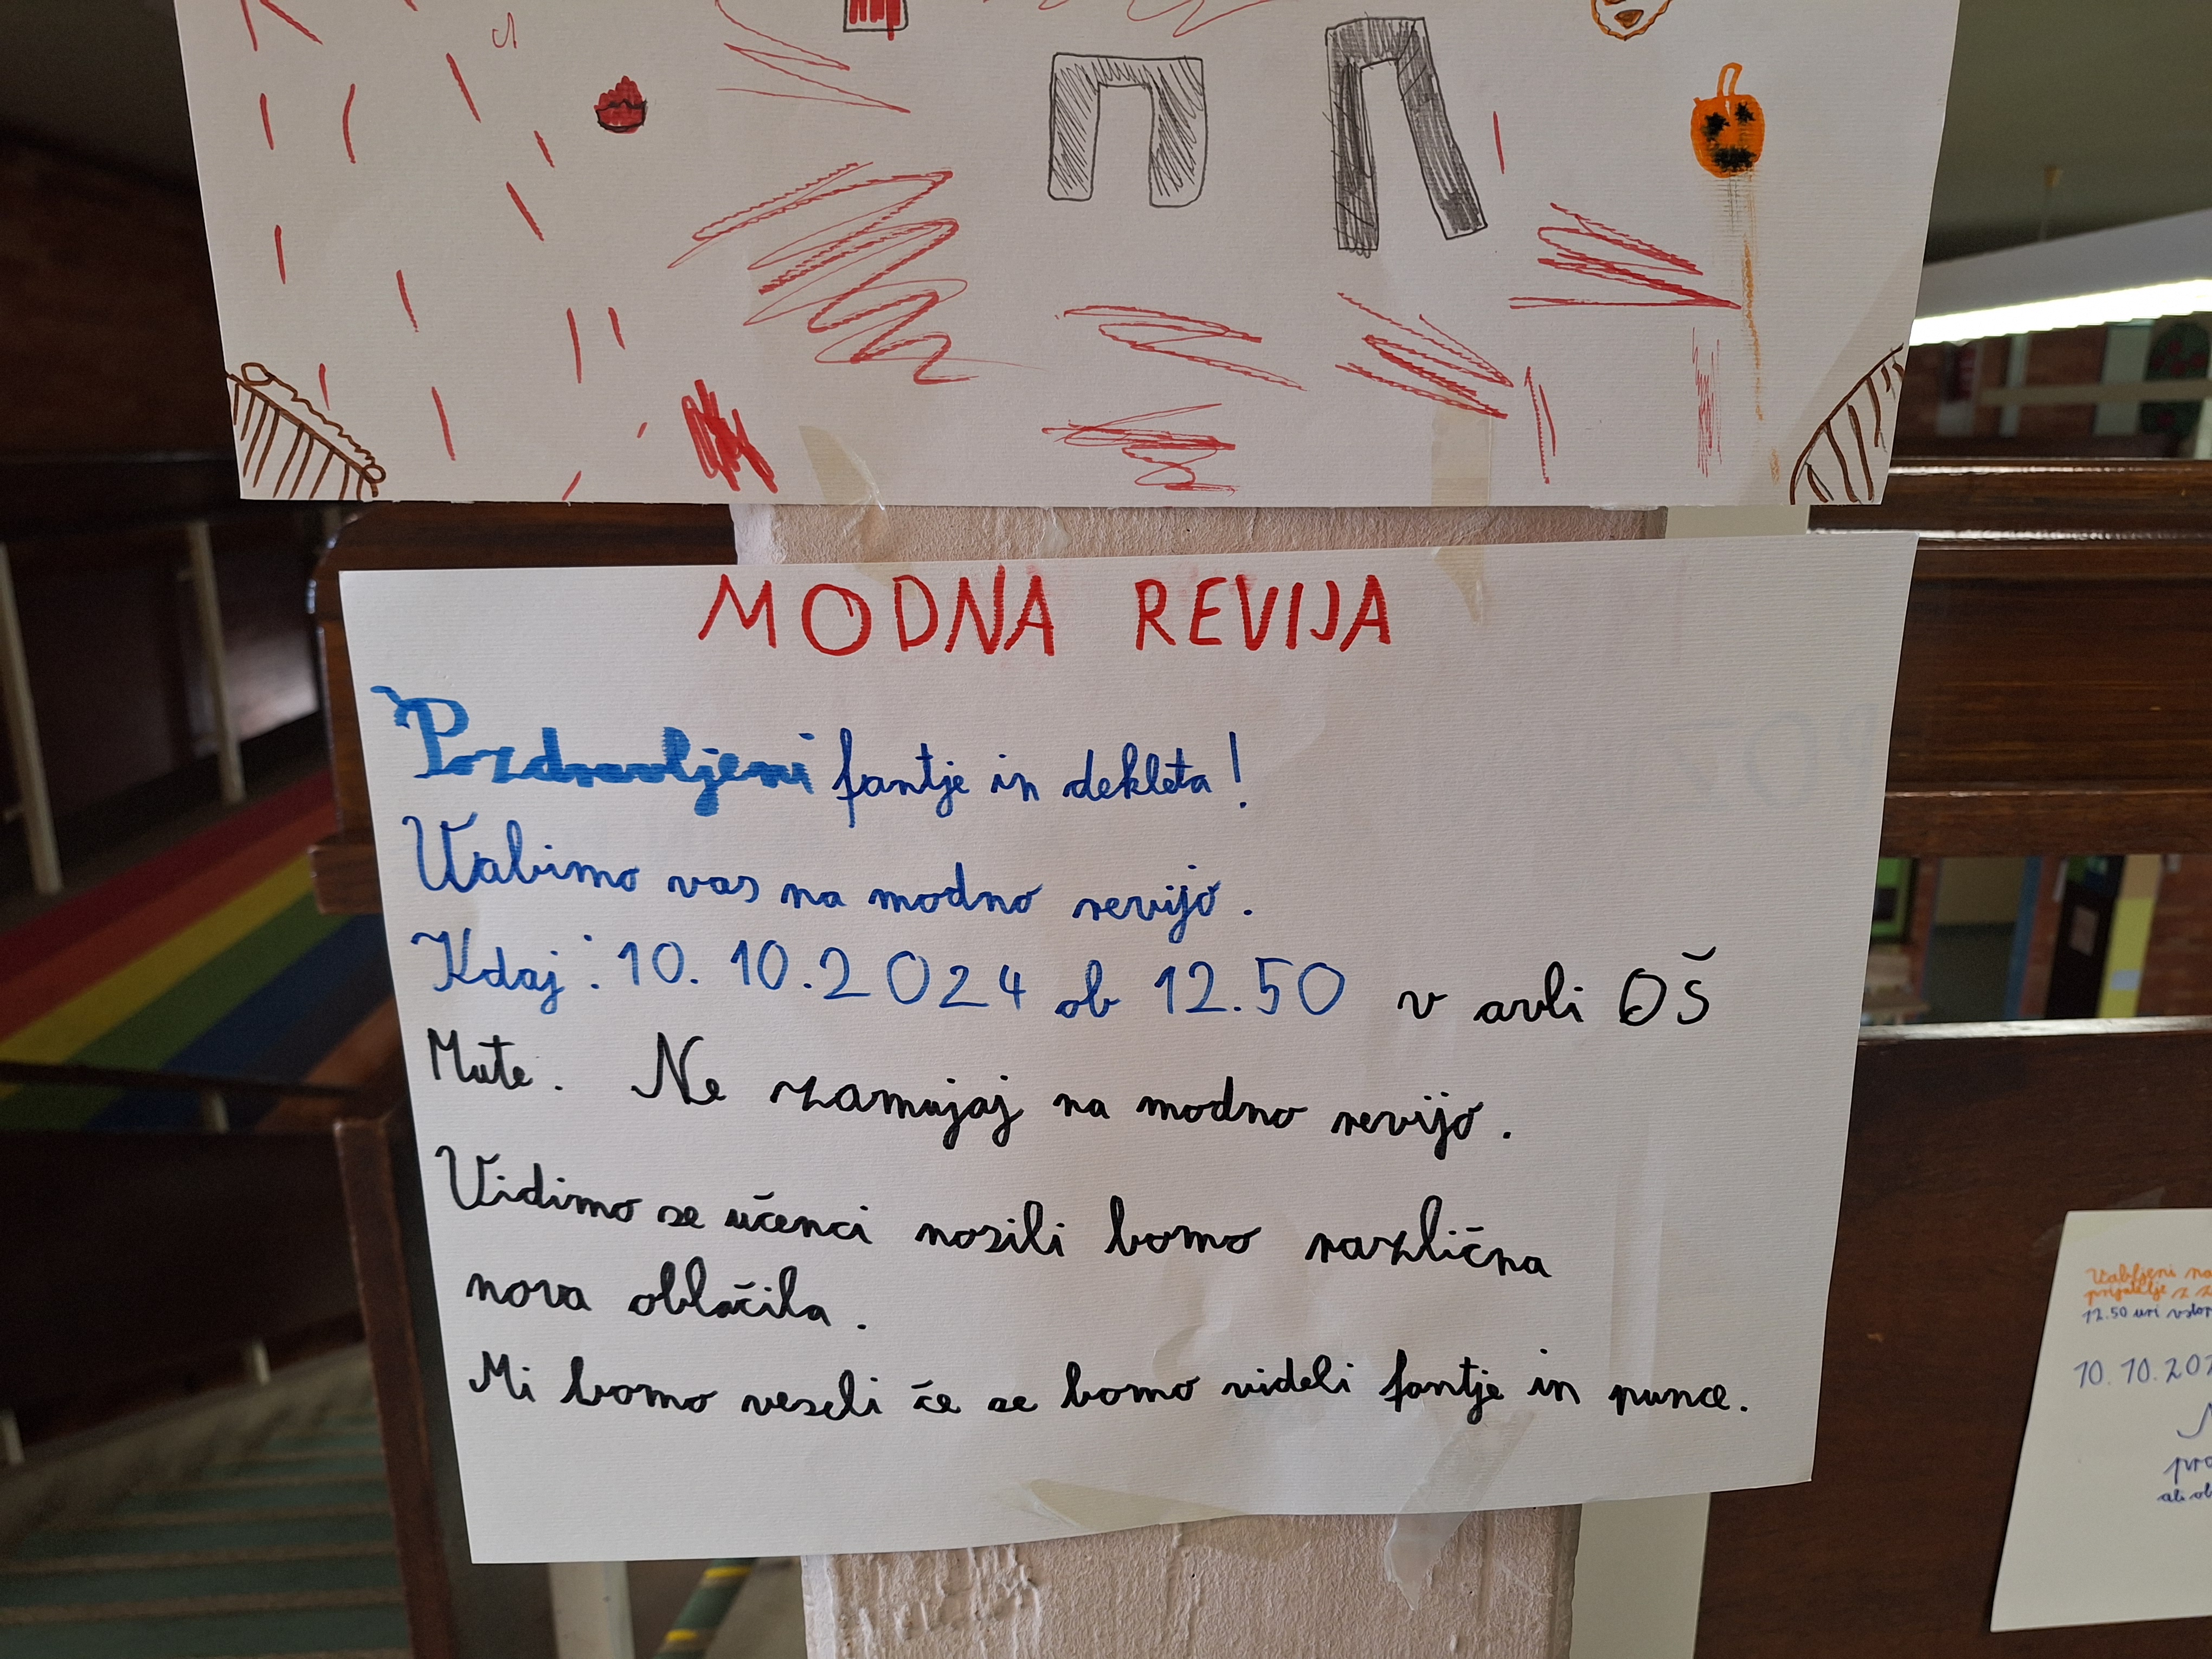 MODNA REVIJA
Pozdravljeni fantje in dekleta!
Vabimo vas na modno revijo.
Kdaj: 10. 10. 2024 ob 12.50 v avli OŠ
Mute. Ne zamujaj na modno revijo.
Vidimo se učenci nosili bomo različna
nova oblačila.
Mi bomo veseli če se bomo videli fantje in punce.
Vabljeni na
prijatelje z
12.50 uri
10. 10. 202